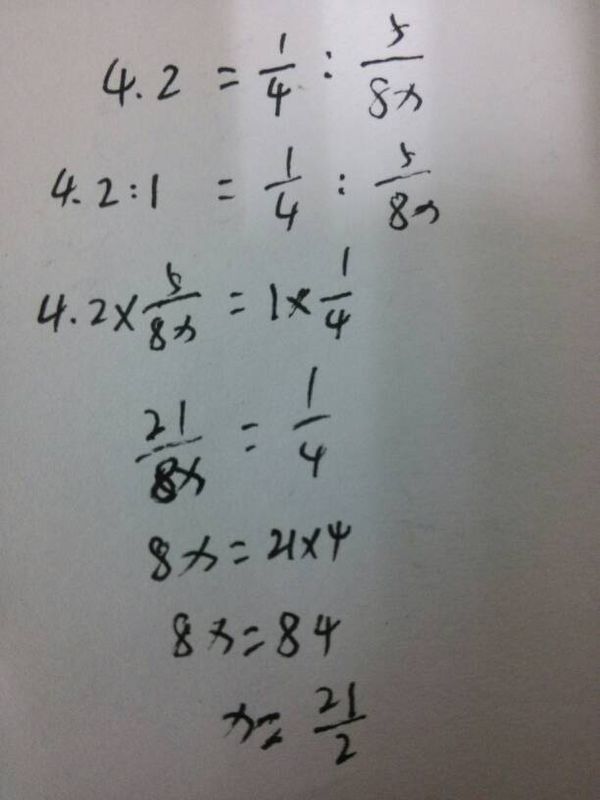 4.2 = 1/4 : 5/8x
4.2:1 = 1/4 : 5/8x
4.2×5/8x = 1×1/4
21/8x = 1/4
8x=21×4
8x=84
x=21/2